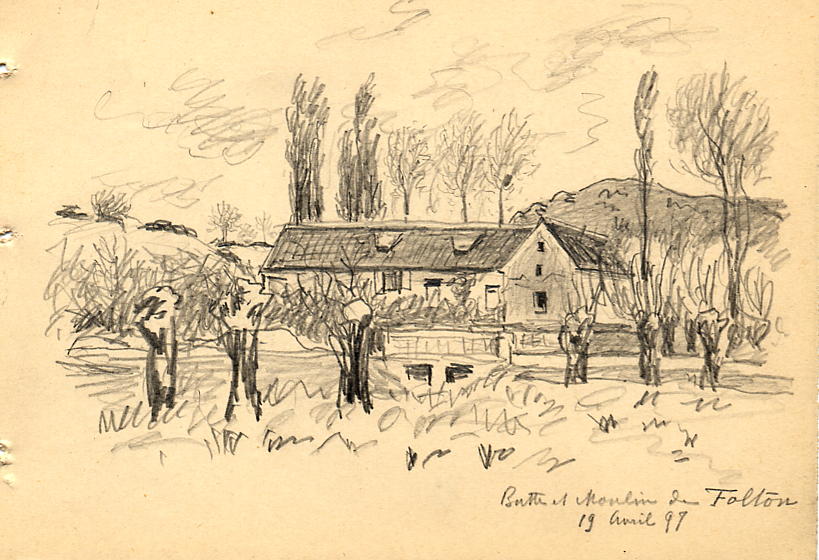 Butte et Moulin de Folton
19 Avril 97